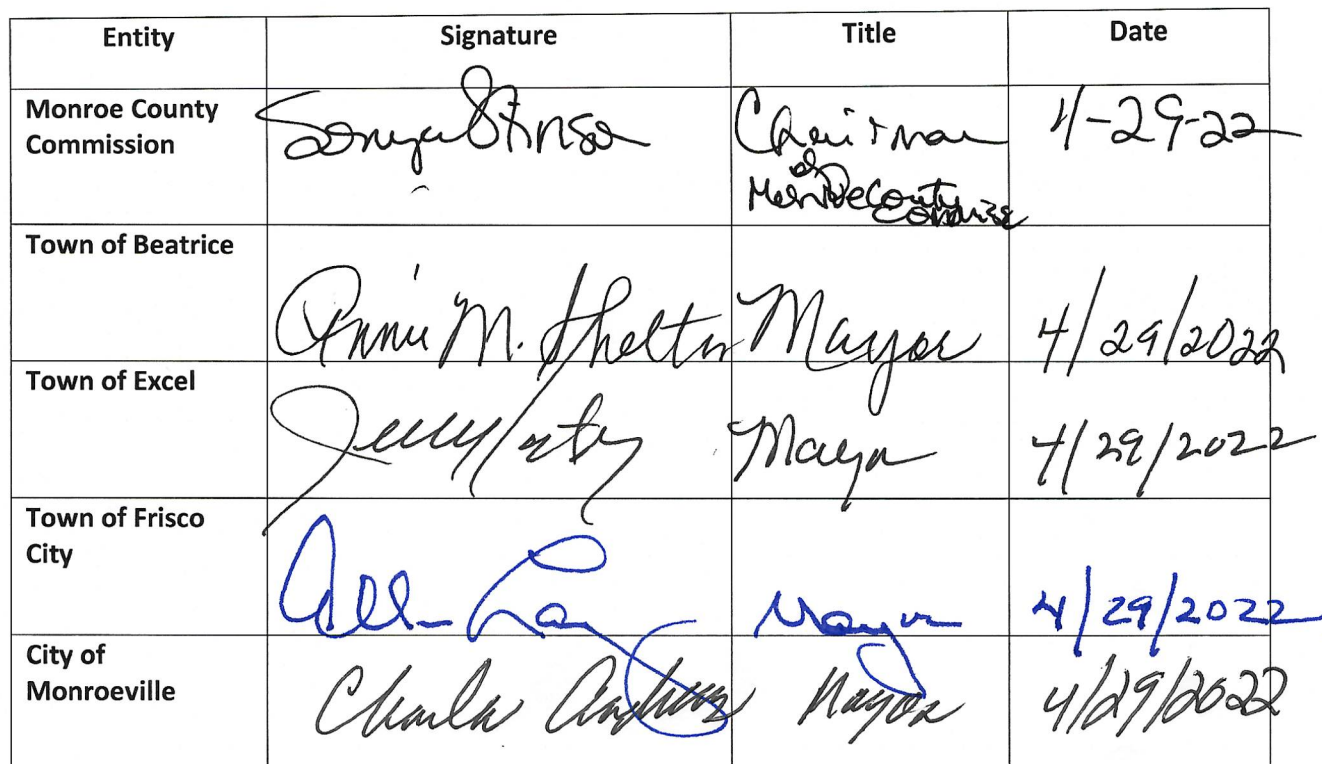 Entity Signature Title Date
Monroe County
Commission
Sonya Stinson Chairman 4-29-22
of
Monroe County
Town of Beatrice
Annie M. Shelton Mayor 4/29/2022
Town of Excel
Jerry Mayor 4/29/2022
Town of Frisco
City
Mayor 4/29/2022
City of
Monroeville
Charles Andrews Mayor 4/29/2022